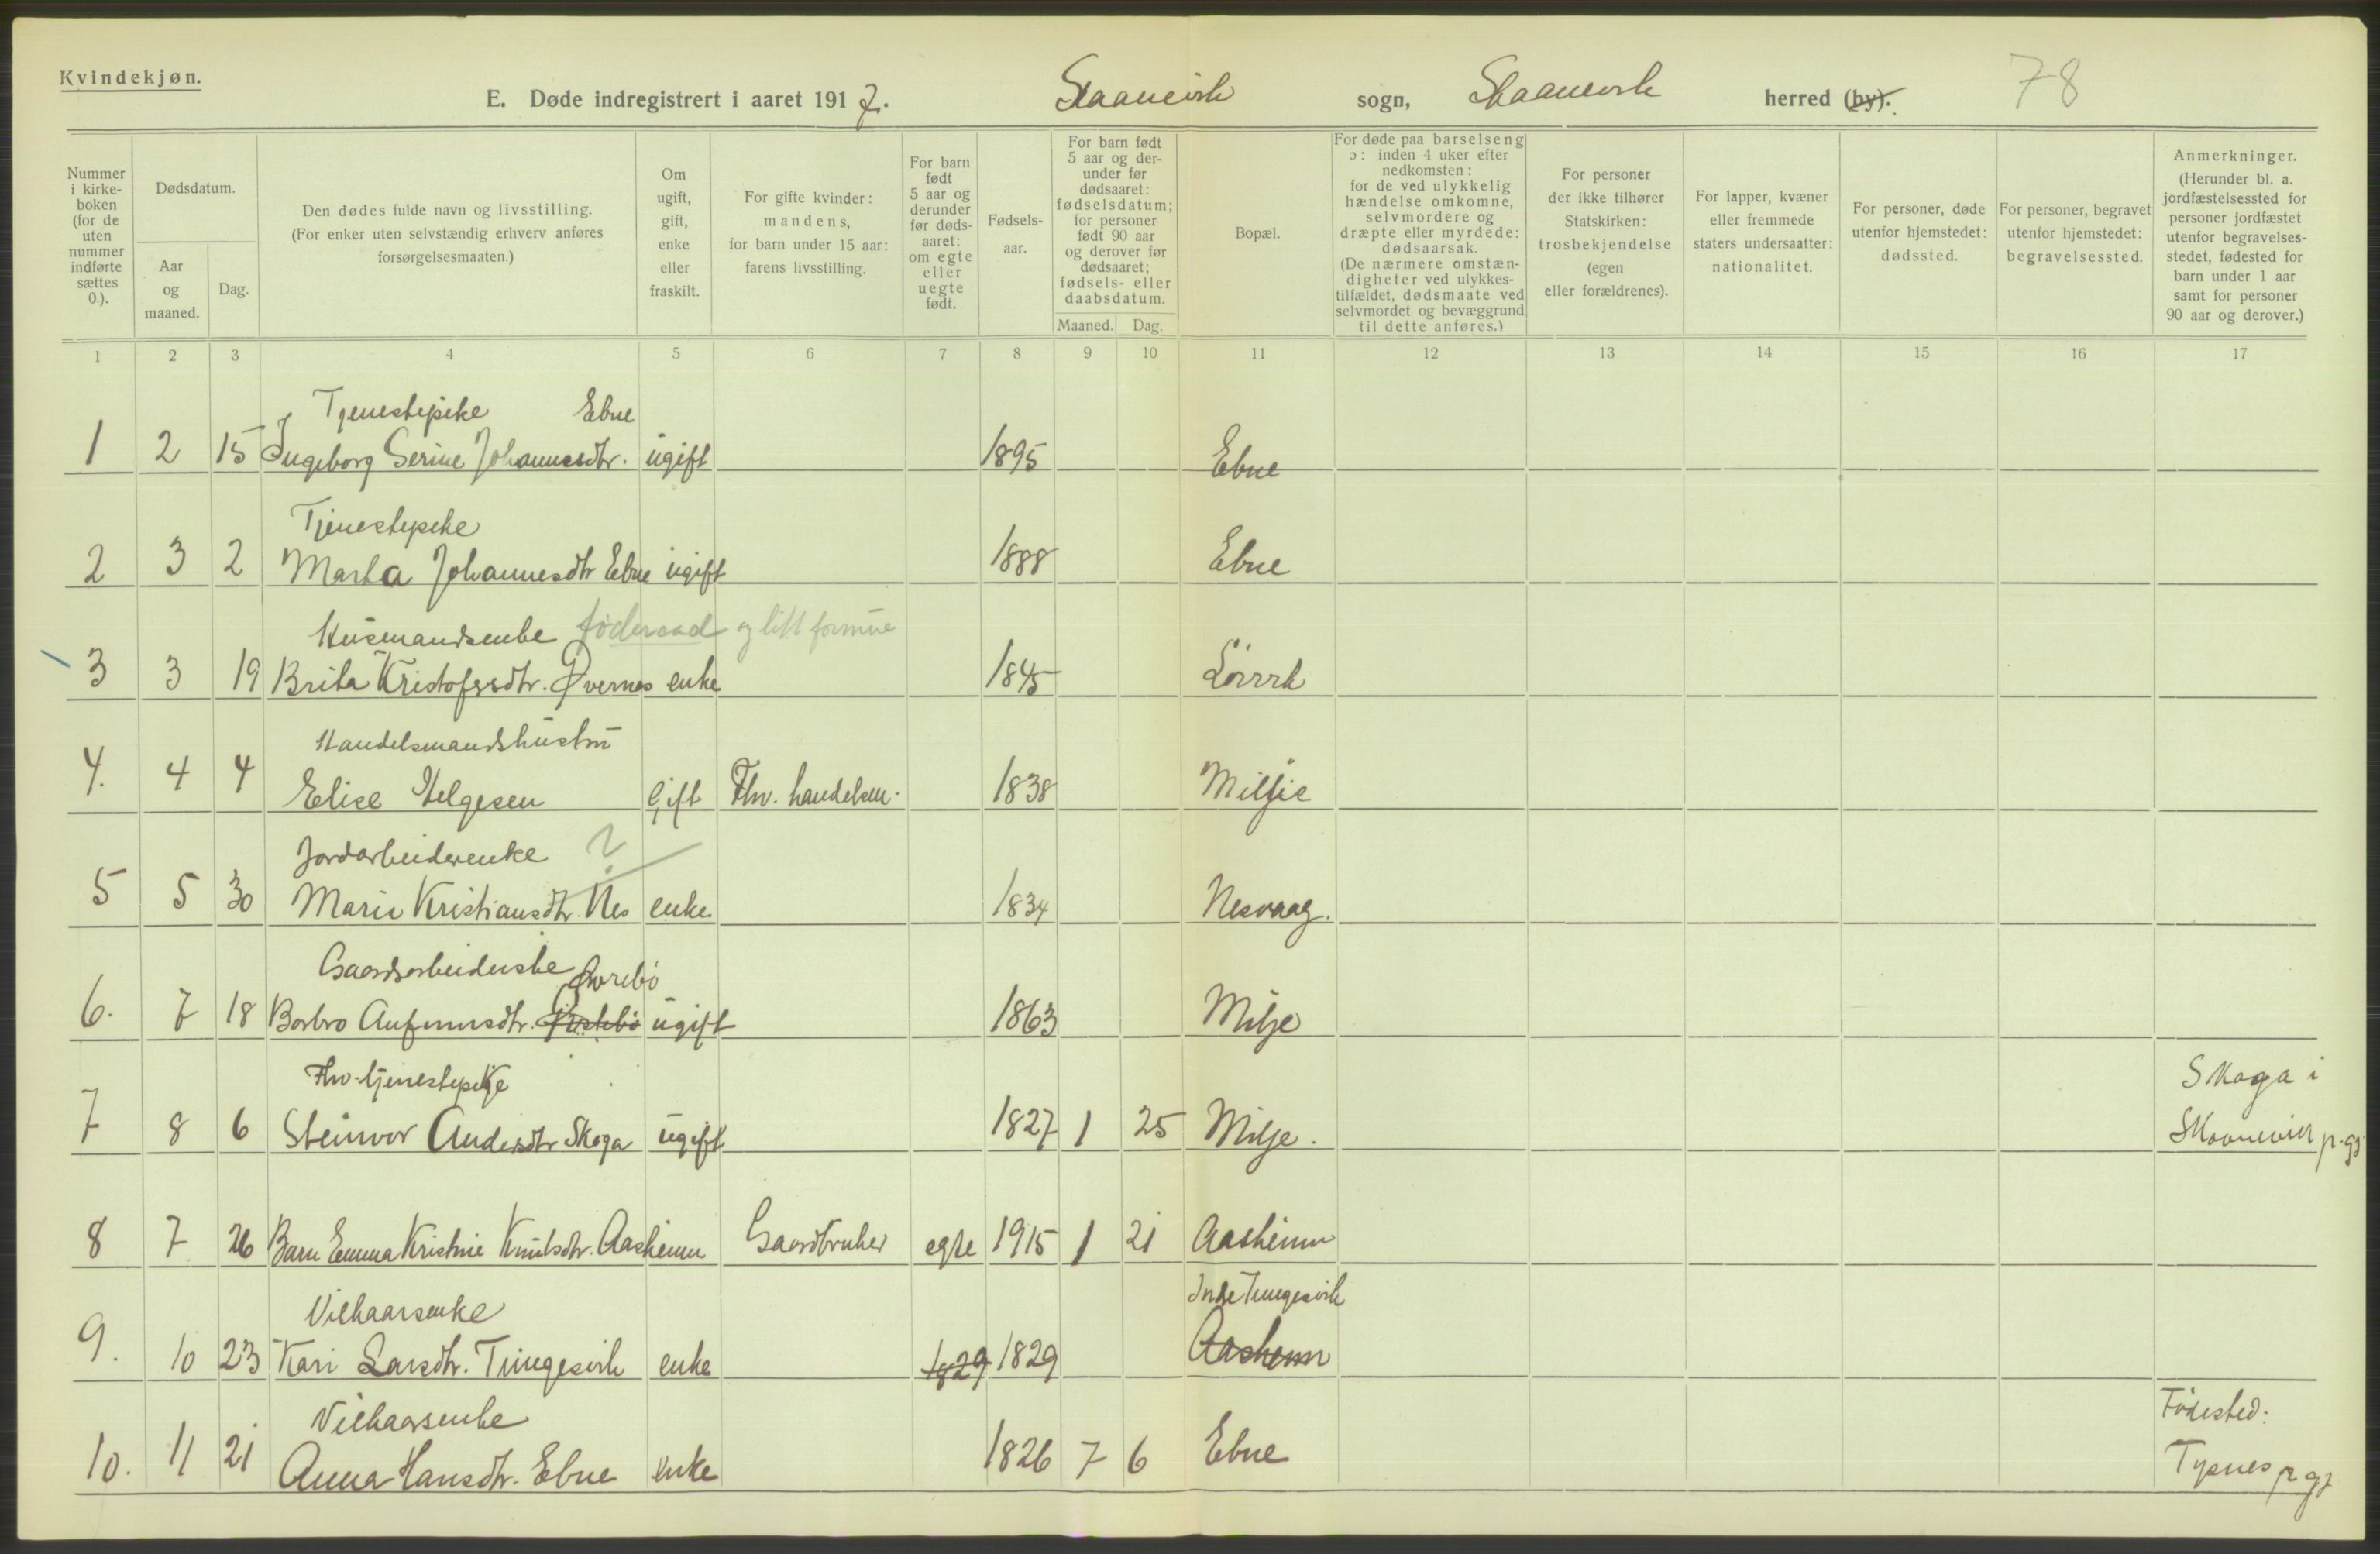 Kvindekjøn.
E. Døde indregistrert i aaret 1917. Skaanevik sogn, Skaanevik herred (by). 78
Nummer i kirke-boken (for de uten nummer indførte sættes 0.).
Dødsdatum.
Aar og maaned.
Dag.
Den dødes fulde navn og livsstilling.
(For enker uten selvstændig erhverv anføres forsørgelsesmaaten.)
Om ugift, gift, enke eller fraskilt.
For gifte kvinder: mandens, for barn under 15 aar: farens livsstilling.
For barn født 5 aar og derunder før døds-aaret: om egte eller uegte født.
Fødsels-aar.
For barn født 5 aar og der-under før dødsaaret: fødselsdatum; for personer født 90 aar og derover før dødsaaret; fødsels- eller daabsdatum.
Maaned. Dag.
Bopæl.
For døde paa barselseng ɔ: inden 4 uker efter nedkomsten: for de ved ulykkelig hændelse omkomne, selvmordere og dræpte eller myrdede: dødsaarsak. (De nærmere omstæn-digheter ved ulykkes-tilfældet, dødsmaate ved selvmordet og bevæggrund til dette anføres.)
For personer der ikke tilhører Statskirken: trosbekjendelse (egen eller forældrenes).
For lapper, kvæner eller fremmede staters undersaatter: nationalitet.
For personer, døde utenfor hjemstedet: dødssted.
For personer, begravet utenfor hjemstedet: begravelsessted.
Anmerkninger. (Herunder bl. a. jordfæstelsessted for personer jordfæstet utenfor begravelses-stedet, fødested for barn under 1 aar samt for personer 90 aar og derover.)
1 2 3 4 5 6 7 8 9 10 11 12 13 14 15 16 17
Tjenestepike Ebne
1 2 15 Ingeborg Serine Johannesdtr. ugift 1895 Ebne
Tjenestepike
2 3 2 Marta Johannesdtr Ebne ugift 1888 Ebne
Husmandsenke føderaad og litt formue
3 3 19 Brita Kristofersdtr. Øvernes enke 1845
Handelsmandshustru
4. 4 4 Elise Helgesen Gift Fhv. handelsm. 1838 Milje
Jordarbeiderenke ?
5 5 30 Marie Kristiansdtr. Nes enke 1834 Nesvaag.
Gaardsarbeiderske Øvrebø
6. 7 18 Barbro Anfinnsdtr. ugift 1863 Milje
Fhv. tjenestepike Skoga i
7 8 6 Steinvor Andersdtr Skoga ugift 1827 1 25 Milje. Skaanevik p.gj
8 7 26 Barn Emma Kristine Knutsdtr. Aasheim Gaardbruker egte 1915 1 21 Aasheim
Vilkaarsenke Indre Tungesvik
9. 10 23 Kari Larsdtr. Tungesvik enke 1829 1829 Aasheim
Vilkaarsenke Fødested:
10. 11 21 Anna Hansdtr. Ebne enke 1826 7 6 Ebne Tysnes p gj